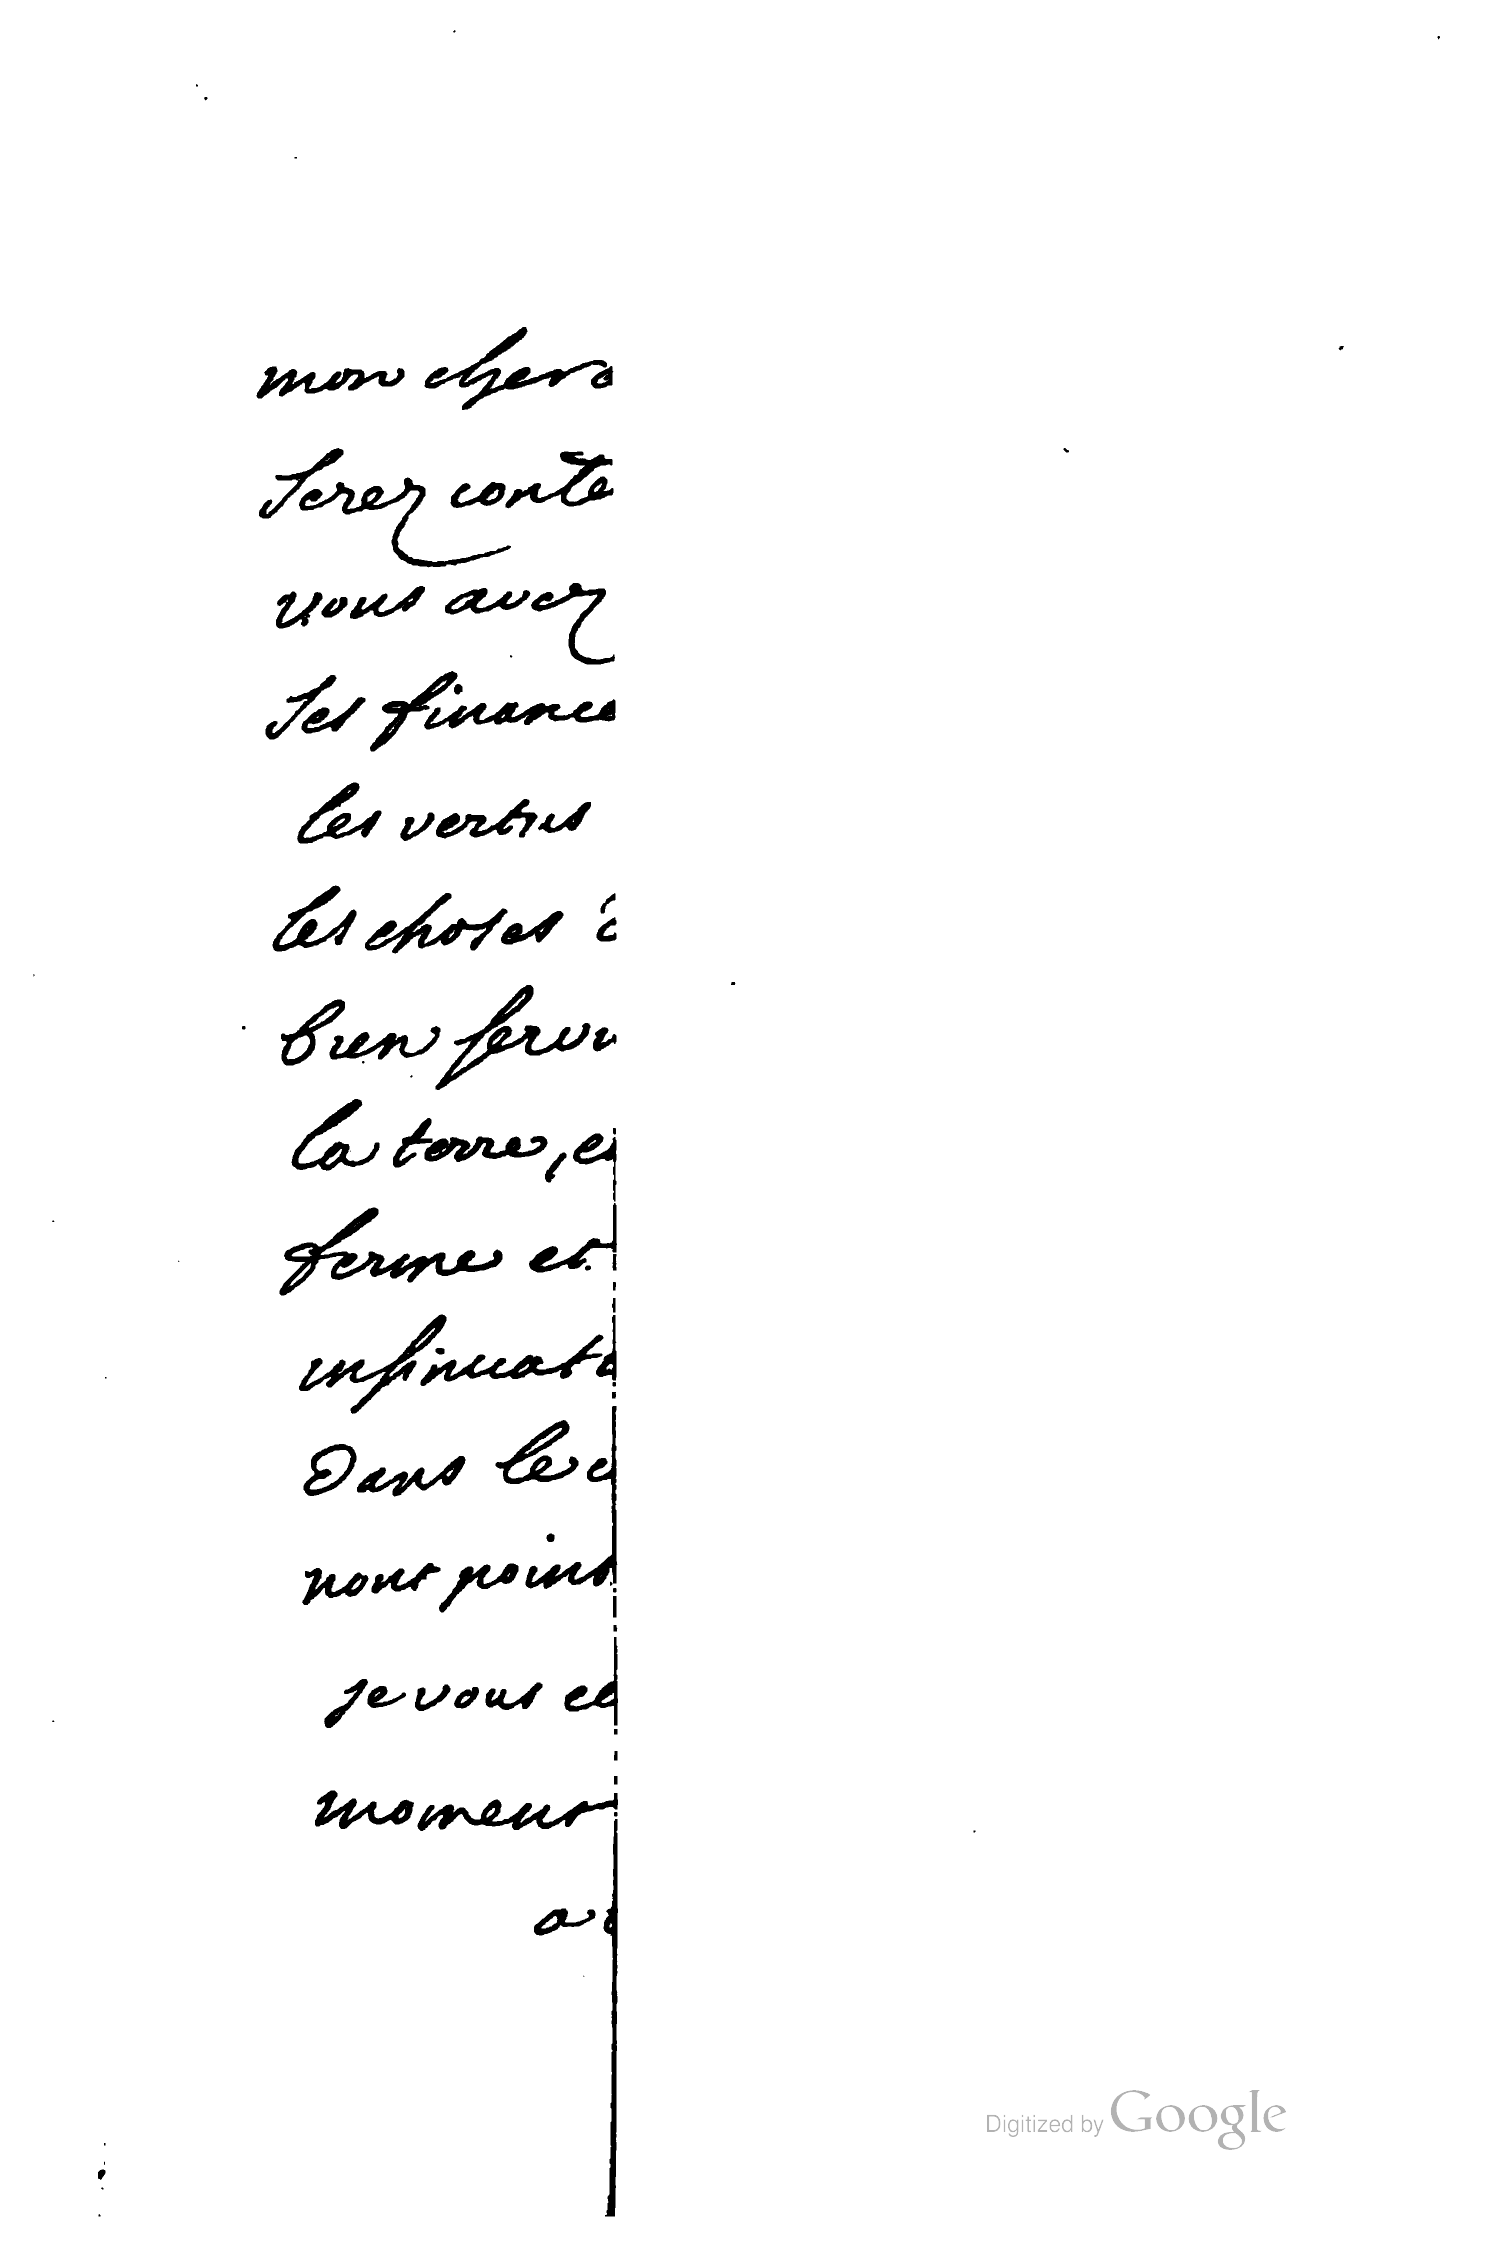 mon cher
Serez conte
vous avez
Ses finance
les vertus
les choses
bien servi
la terre, e
ferme et
insinuat
Dans le
nont point
je vous ce
moment
a
Digitized by Google